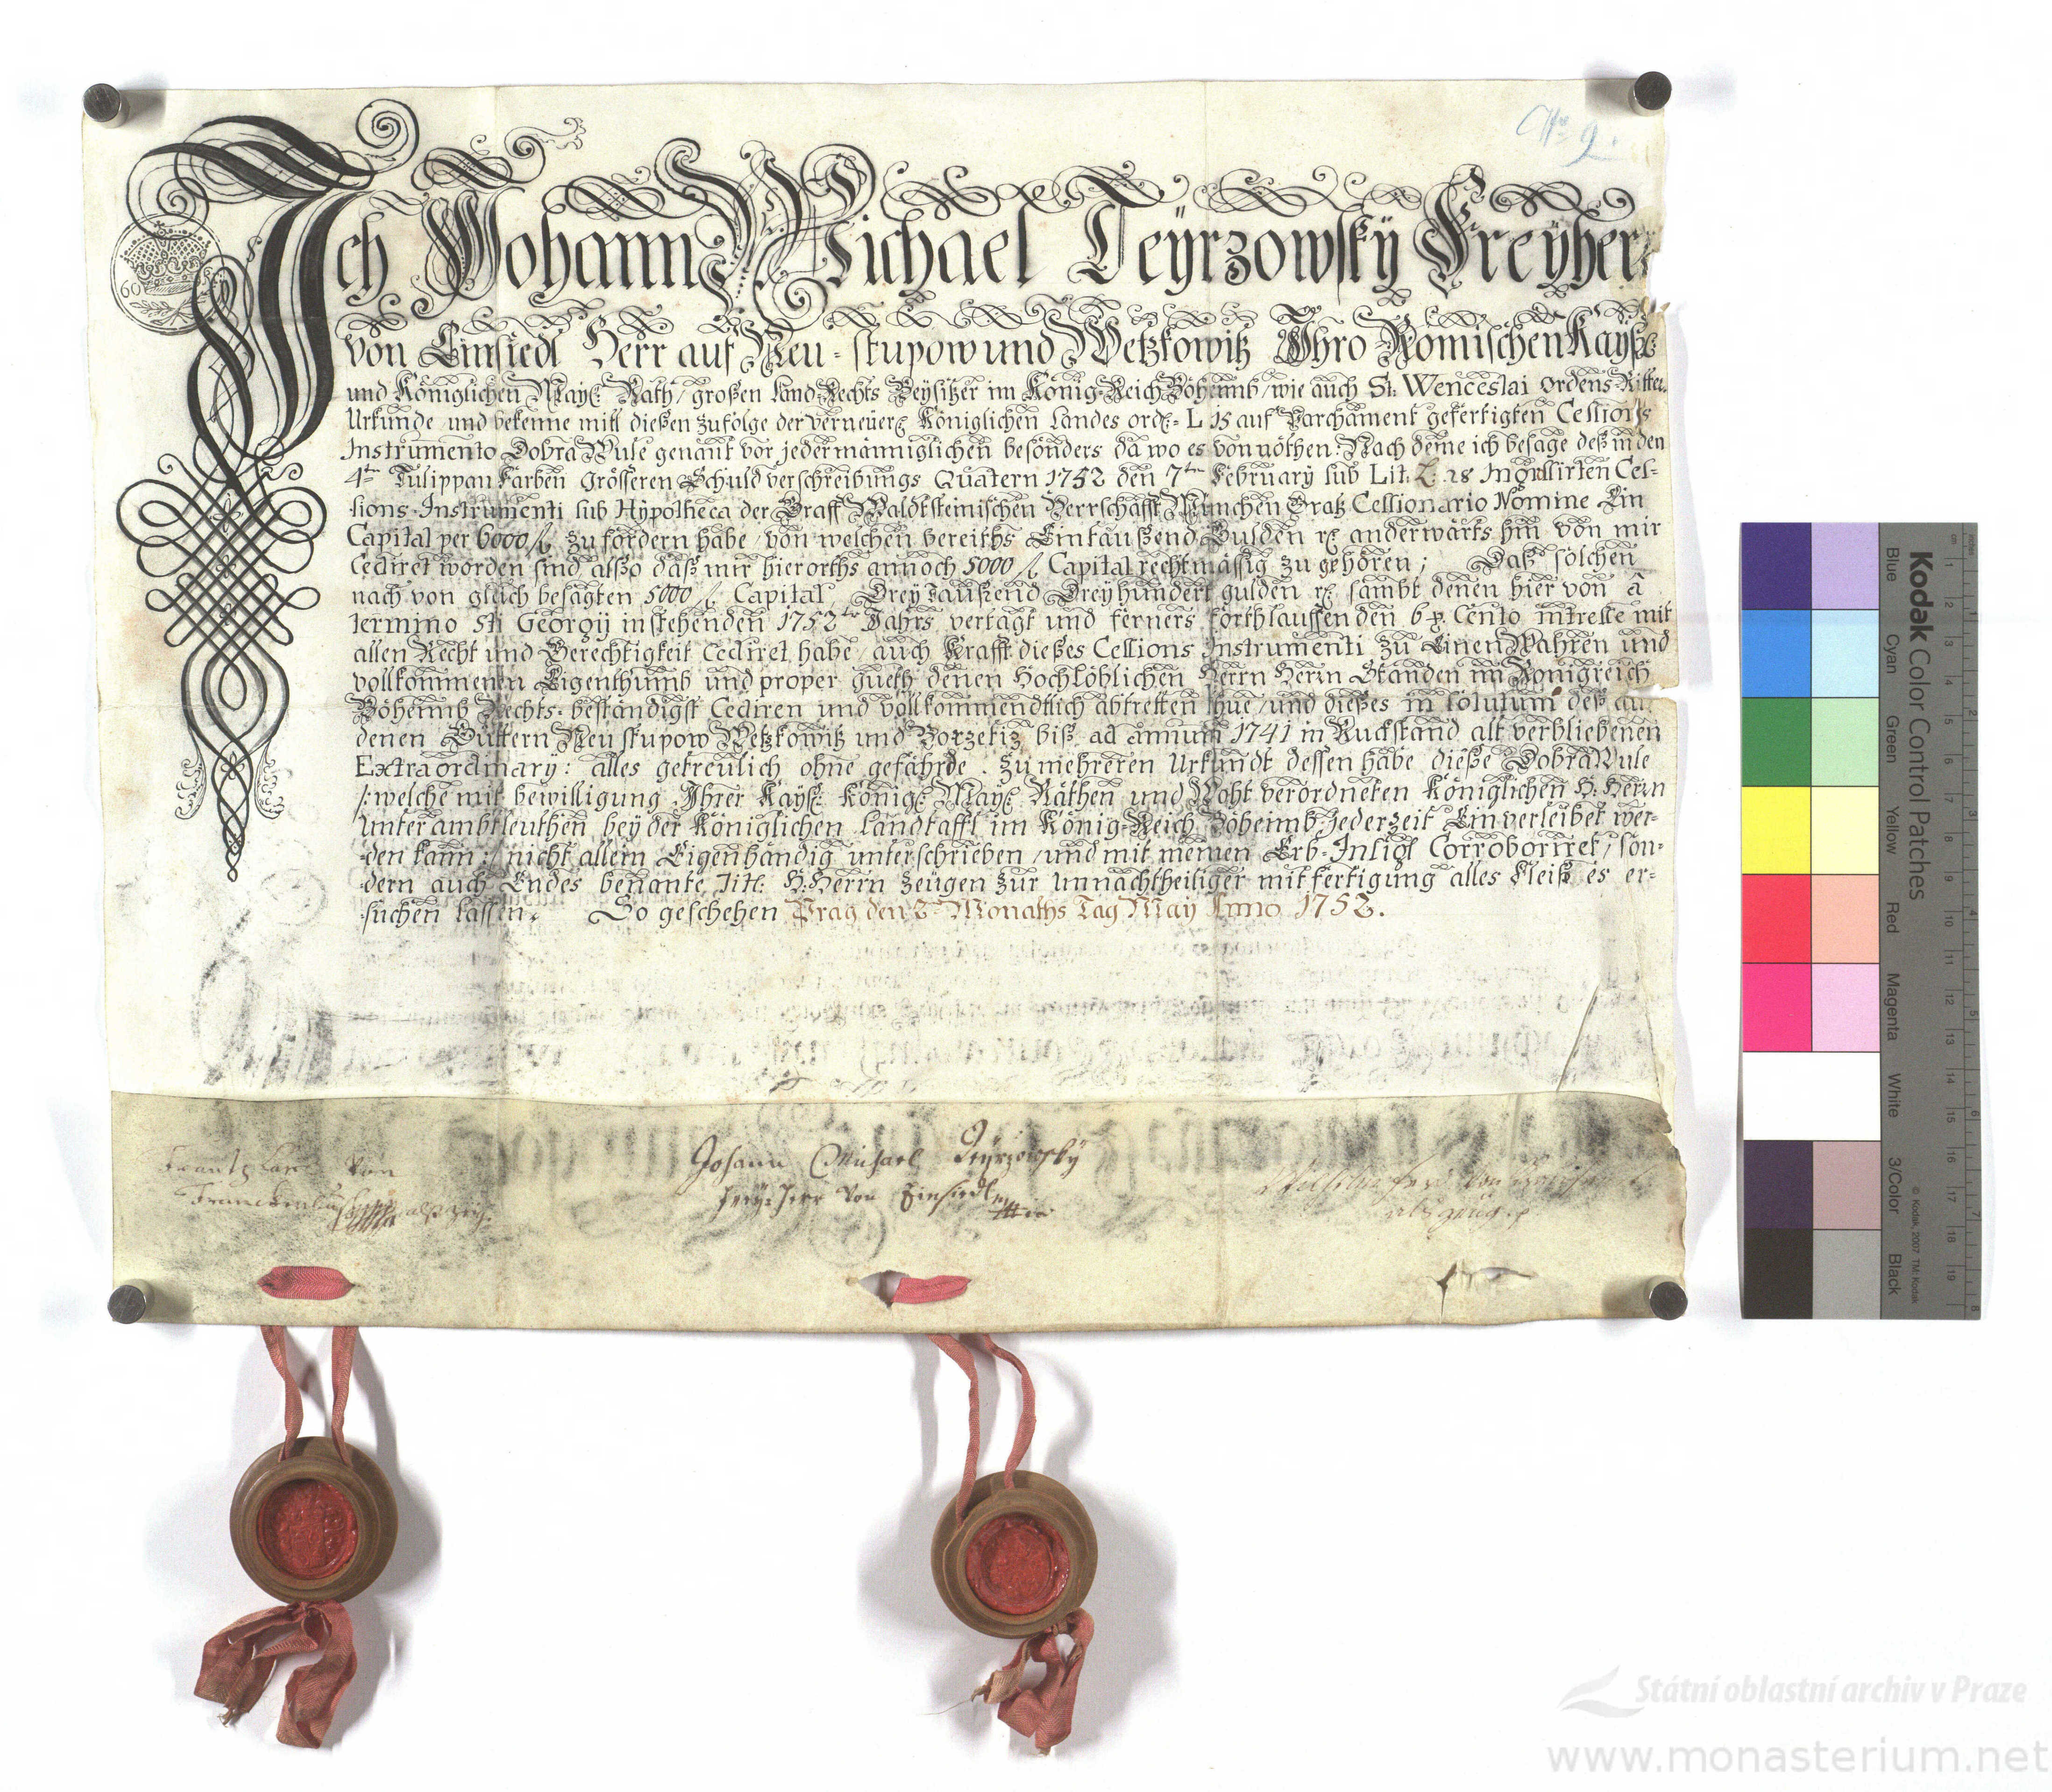 No 2.
60
Ich Johann Michael Teÿrzowskÿ Freÿherr
von Einsiedl Herr auf Neu-stupow und Wetzkowitz Ihro Römischen Kaÿße
und Königlichen Maÿ: Rath / großen Land Rechts Beÿsitzer im König-Reich Böheimb / wie auch St: Wenceslai ordens-Ritter
Urkunde / und bekenne mitl dießen zufolge der verneüer: Königlichen Landes ord: L 15 auf Parchament gefertigten Cessions
Instrumento Dobra Wule genant vor jedermänniglichen besonders da wo es von nöthen: Nach deme ich besage deß in den
4ten Tulippan Farben Grösseren Schuldverschreibungs Quatern 1752 den 7ten Februarÿ sub Lit: L: 28 Ingrossirten Ces-
sions-Instrumenti sub Hÿpotheca der Graff Waldtsteinischen Herrschafft München Gratz Cessionario Nomine Ein
Capital per 6000 f zu fordern habe / von welchen bereiths Eintaußend Gulden rh: anderwärts hin von mir
Cediret worden sind alßo daß mir hierorths annoch 5000 f Capital rechtmässig zu gehören; Daß solchen
nach von gleich besagten 5000 f Capital Dreÿ Taußend Dreÿhundert gulden rh: sambt denen hier von â
Termino Sti Georgÿ instehenden 1752ten Jahrs vertagt und ferners forthlauffenden 6 p Cento intresse mit
allen Recht und Gerechtigkeit Cediret habe / auch Krafft dießes Cessions Instrumenti zu Einen Wahren und
vollkommenen Eigenthumb und proper gueth denen Hochlöblichen Herrn Herrn Ständen im Königreich
Böheimb Rechts-beständigst Cediren und vollkommendtlich abtretten thue / und dießes in solutum deß an
denen Güttern Neu stupow Wetzkowitz und Borzetitz biß ad annum 1741 in Ruckstand alt verbliebenen
Extraordinarÿ: alles getreulich ohne gefährde. Zu mehreren Urkundt dessen habe dieße Dobra Wule
/: welche mit bewilligung Ihrer Kaÿß: König: Maÿ: Räthen und Woht verordneten Königlichen H: Herrn
Unter ambtleuthen beÿ der Königlichen Landtaffl im König-Reich Böheimb Jederzeit Einverleibet wer-
den kann :/ nicht allein Eigenhändig unterschrieben / und mit meinen Erb-Insigl Corroboriret / son-
dern auch Endes benante Titl: H: Herrn Zeügen zur unnachtheiliger mitfertigung alles Fleiß es er-
suchen lassen. So geschehen Prag den 2ten Monaths Tag Maÿ Anno 1752.
Frantz Carl von
als Zeug.
Johann Michael Teÿrzowskÿ
Freÿ Herr von Einsiedl
als Zeüg
Kodak Color Control Patches
Blue Cyan Green Yellow Red Magenta White 3/Color Black
© Kodak, 2007 TM: Kodak
cm 1 2 3 4 5 6 7 8 9 10 11 12 13 14 15 16 17 18 19
inches 1 2 3 4 5 6 7 8
Státní oblastní archiv v Praze
www.monasterium.net